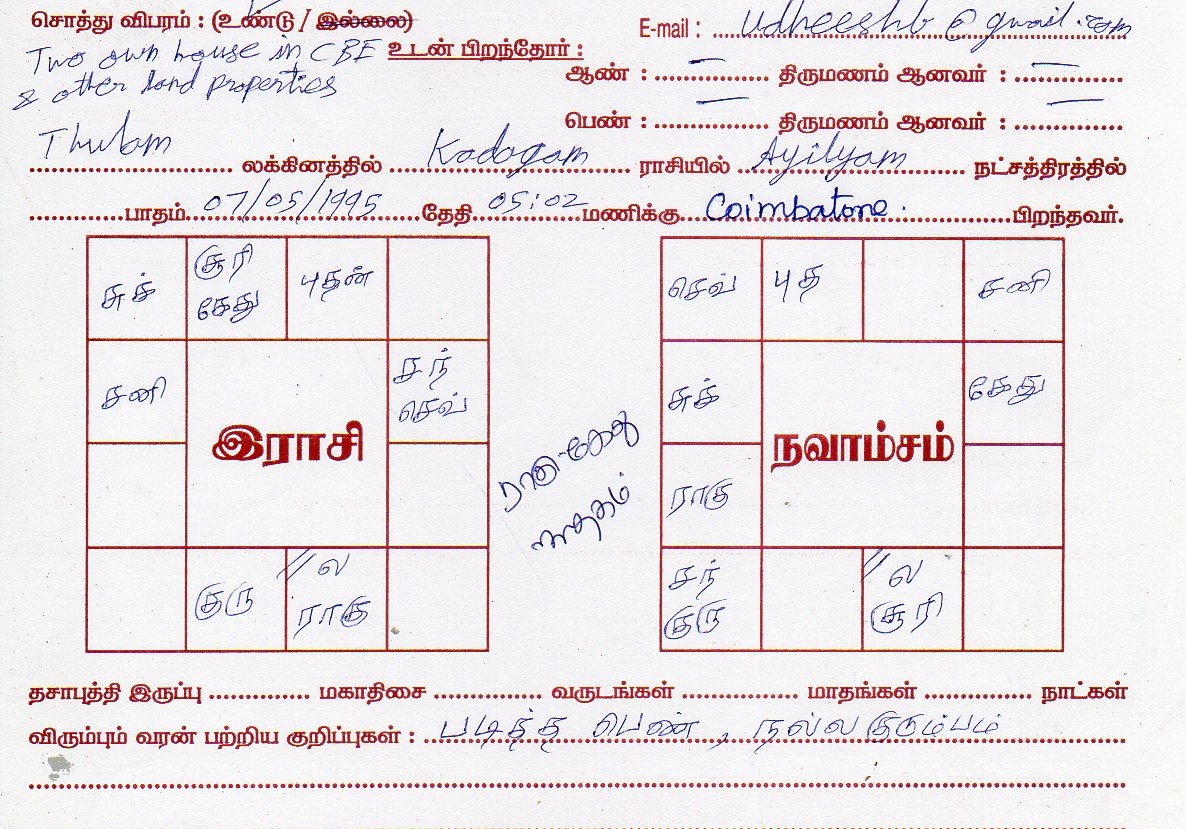 சொத்து விபரம் : (உண்டு / இல்லை)
E-mail : udheeshb@gmail.com
Two own house in CBE
& other land properties
உடன் பிறந்தோர் :
ஆண் : — திருமணம் ஆனவர் : —
பெண் : — திருமணம் ஆனவர் : —
Thulam லக்கினத்தில் Kadagam ராசியில் Ayilyam நட்சத்திரத்தில்
பாதம் 07/05/1995 தேதி 05:02 மணிக்கு Coimbatore. பிறந்தவர்.
சுக் சூரி கேது புதன்
சனி சந் செவ்
இராசி
குரு // ல ராகு
ராகு-கேது
செவ் புத சனி
சுக் கேது
நவாம்சம்
ராகு
சந் குரு // ல சூரி
தசாபுத்தி இருப்பு .............. மகாதிசை .............. வருடங்கள் .............. மாதங்கள் .............. நாட்கள்
விரும்பும் வரன் பற்றிய குறிப்புகள் : படித்த பெண், நல்ல குடும்பம்